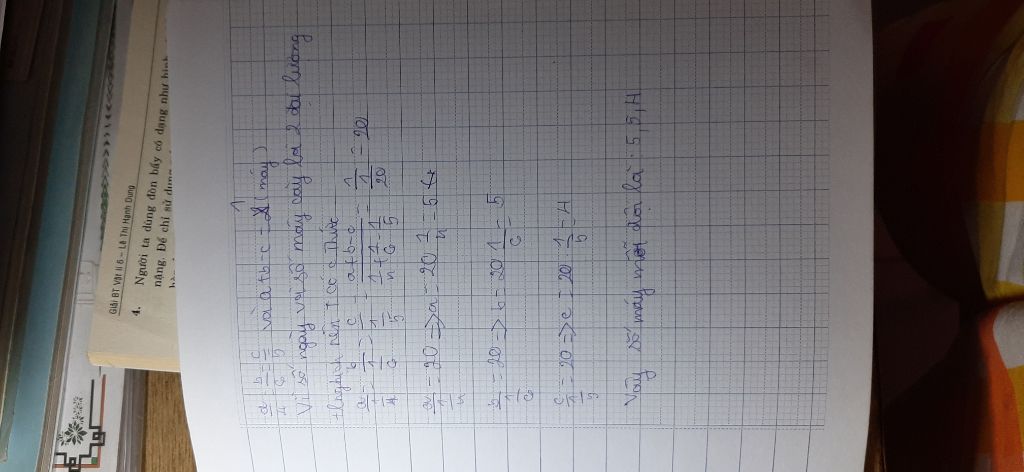 Giải BT Vật lí 6 – Lê Thị Hạnh Dung
4. Người ta dùng đòn bẩy có dạng như hình
nặng. Để chỉ sử dụng
a/4 = b/6 = c/5 và a+b-c = 1 (máy)
Vì số ngày và số máy cày là 2 đại lượng
tỉ nghịch nên ta có c thức
a/(1/4) = b/(1/6) = c/(1/5) = (a+b-c)/(1/4+1/6-1/5) = 1/(1/20) = 20
a/(1/4) = 20 => a = 20 1/4 = 5
b/(1/6) = 20 => b = 20 1/6 = 5
c/(1/5) = 20 => c = 20 . 1/5 = 4
Vậy số máy mỗi đội là : 5, 5, 4